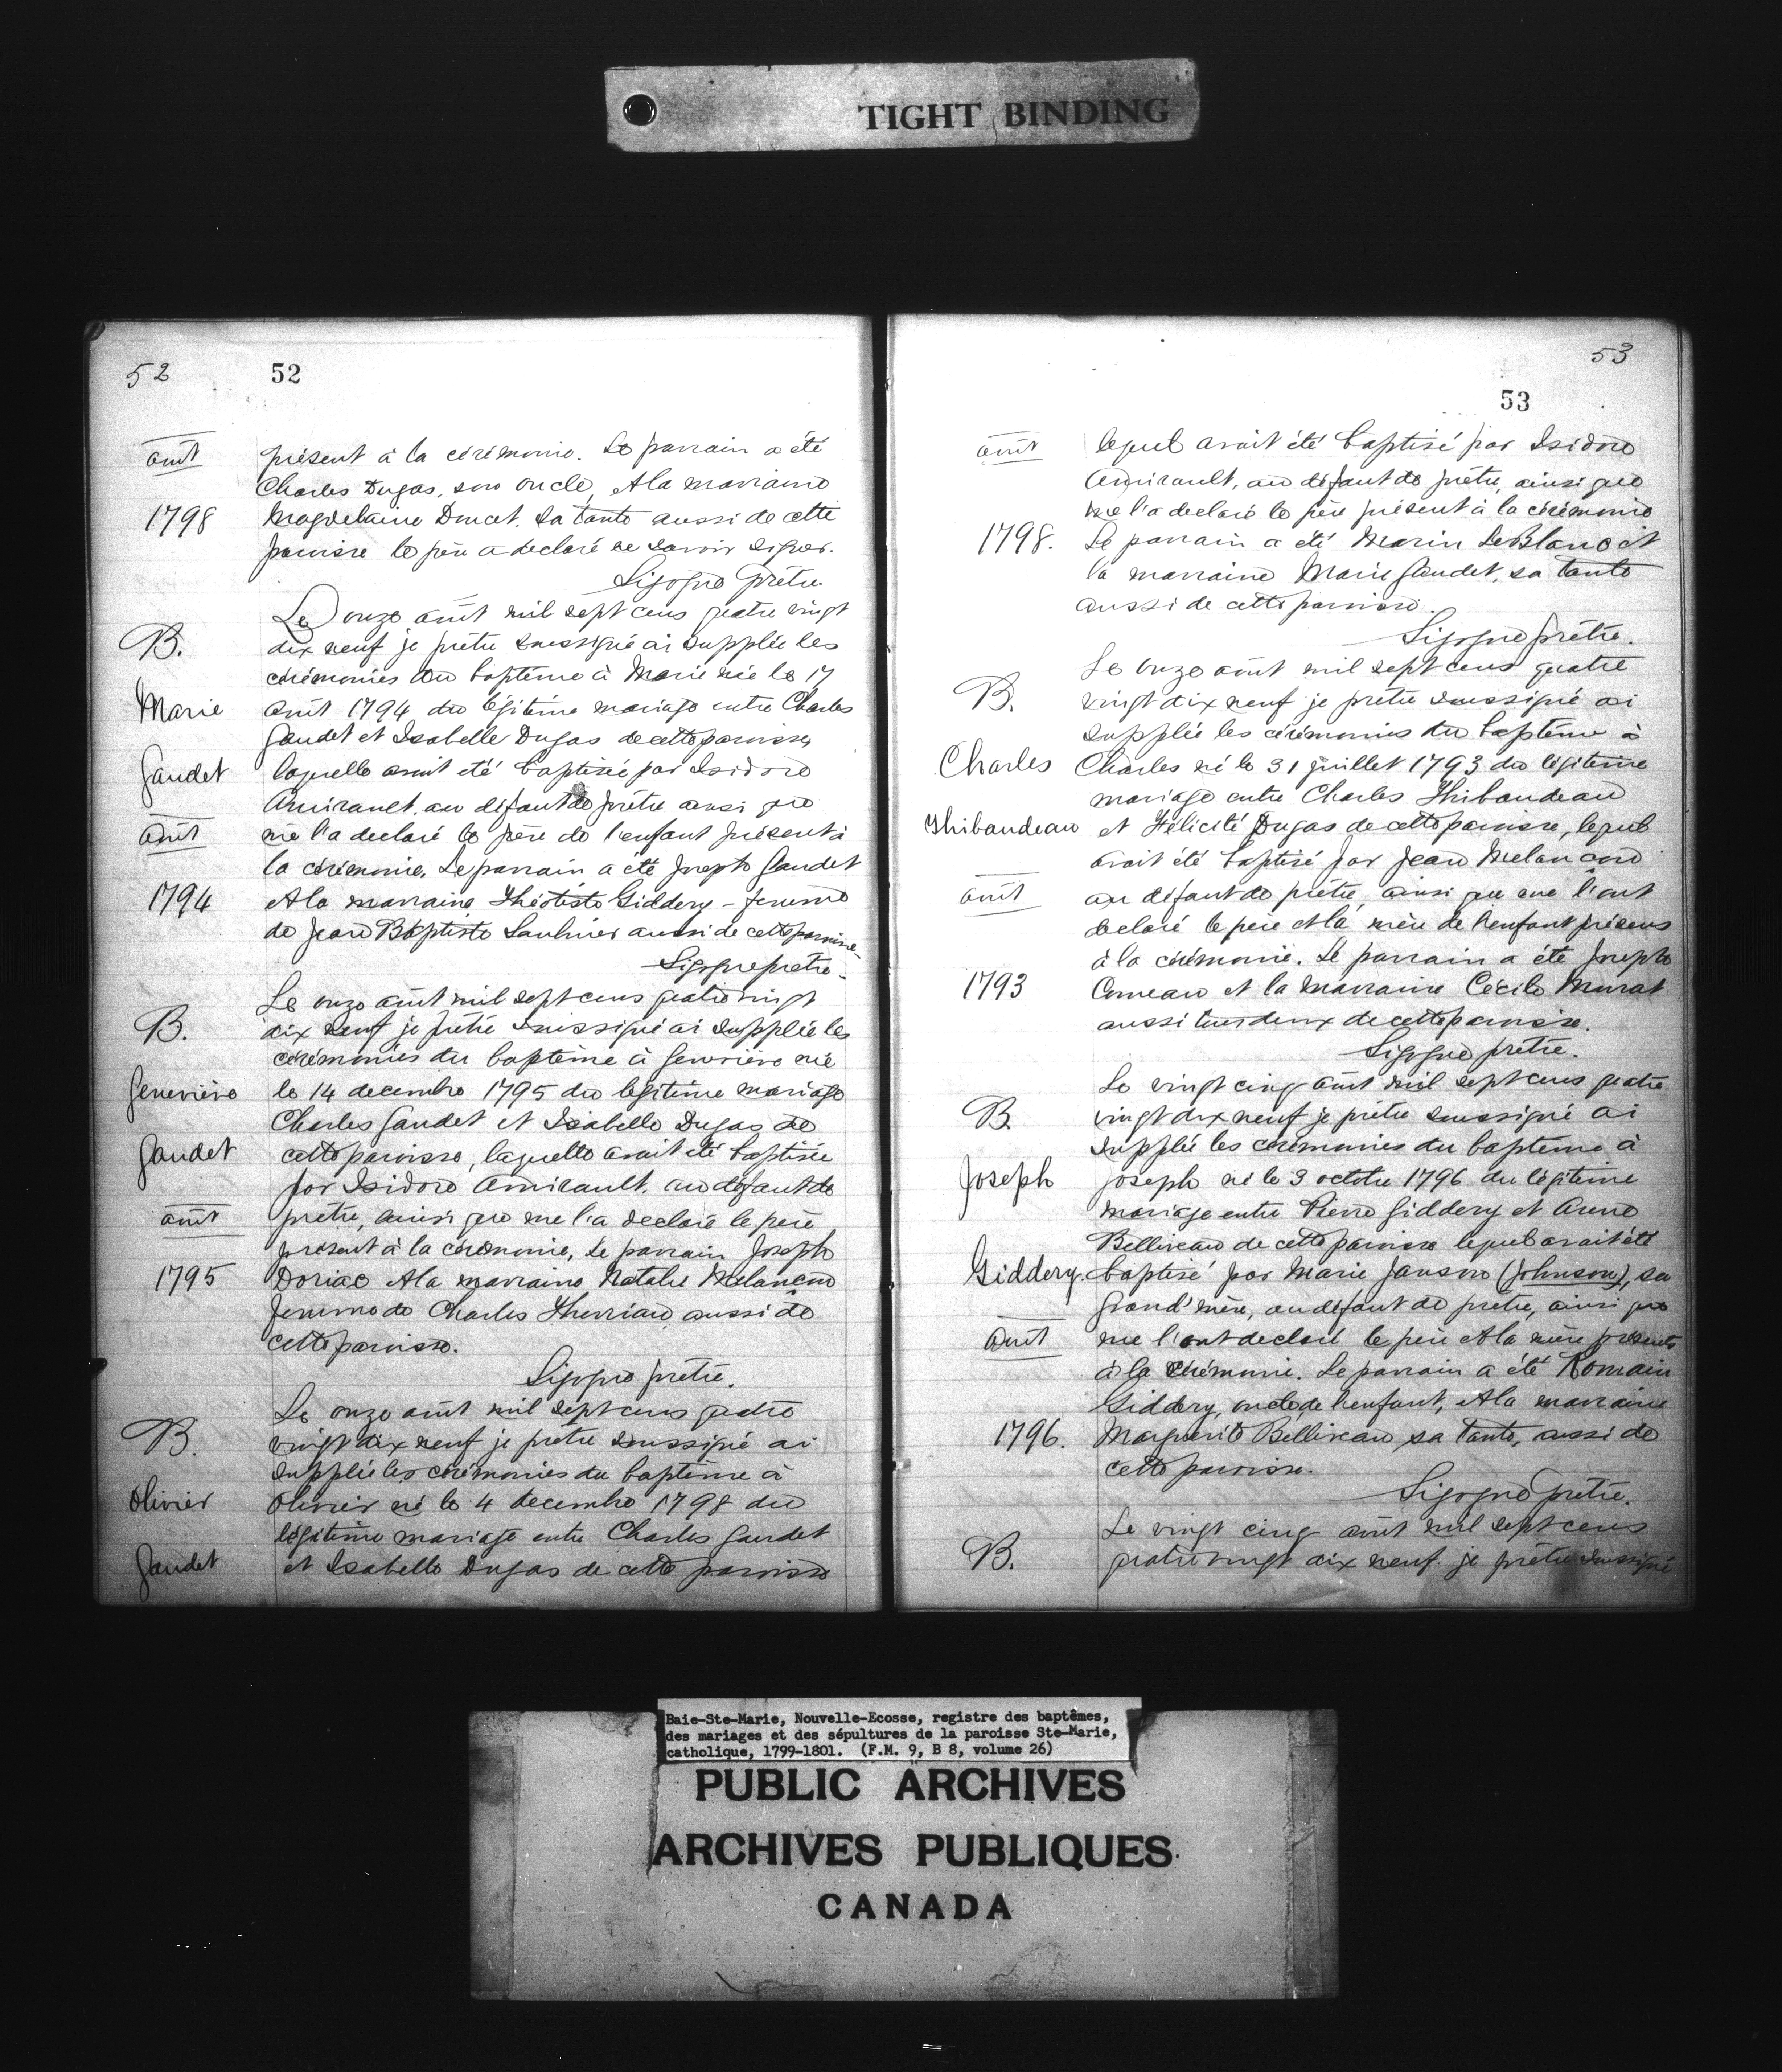 TIGHT BINDING
52
52
août
1798
présent à la cérémonie. Le parrain a été
Charles Dugas, son oncle, et la marraine
Magdelaine Doucet, sa tante aussi de cette
paroisse le père a declaré ne savoir signer.
Sigogne prêtre
B.
Marie
Gaudet
août
1794
Le onze août mil sept cens quatre vingt
dix neuf je prêtre soussigné ai supplée les
cérémonies du baptême à Marie née le 17
août 1794 du légitime mariage entre Charles
Gaudet et Isabelle Dugas de cette paroisse,
laquelle avait été baptisée par Isidore
Amirault, au défaut de prêtre ainsi que
me l'a declaré le père de l'enfant présent à
la cérémonie. Le parrain a été Joseph Gaudet
et la marraine Théotiste Giddery - femme
de Jean Baptiste Saulnier aussi de cette paroisse.
Sigogne prêtre.
B.
Geneviève
Gaudet
août
1795
Le onze août mil sept cens quatre vingt
dix neuf je prêtre soussigné ai supplée les
cérémonies du baptême à Geneviève née
le 14 decembre 1795 du légitime mariage
Charles Gaudet et Isabelle Dugas de
cette paroisse, laquelle avait été baptisée
par Isidore Amirault, au défaut de
prêtre, ainsi que me l'a declaré le père,
présent à la cérémonie, Le parrain Joseph
Doriac et la marraine Natalie Melançon
femme de Charles Therriau aussi de
cette paroisse.
Sigogne prêtre.
B.
Olivier
Gaudet
Le onze août mil sept cens quatre
vingt dix neuf je prêtre soussigné ai
supplée les cérémonies du baptême à
Olivier né le 4 decembre 1798 du
légitime mariage entre Charles Gaudet
et Isabelle Dugas de cette paroisse
53
53
août
1798.
lequel avait été baptisé par Isidore
Amirault, au défaut de prêtre, ainsi que
me l'a declaré le père présent à la cérémonie
Le parrain a été Marin LeBlanc et
la marraine Marie Gaudet, sa tante
aussi de cette paroisse.
Sigogne prêtre.
B.
Charles
Thibaudeau
août
1793
Le onze août mil sept cens quatre
vingt dix neuf je prêtre soussigné ai
supplée les cérémonies du baptême à
Charles né le 31 juillet 1793 du légitime
mariage entre Charles Thibaudeau
et Félicité Dugas de cette paroisse, lequel
avait été baptisé par Jean Melançon
au défaut de prêtre, ainsi que me l'ont
declaré le père et la mère de l'enfant présens
à la cérémonie. Le parrain a été Joseph
Comeau et la marraine Cécile Murat
aussi tous deux de cette paroisse.
Sigogne prêtre.
B.
Joseph
Giddery.
août
1796.
Le vingt cinq août mil sept cens quatre
vingt dix neuf je prêtre soussigné ai
supplée les cérémonies du baptême à
Joseph né le 3 octobre 1796 du légitime
mariage entre Pierre Giddery et Anne
Belliveau de cette paroisse lequel avait été
baptisé par Marie Janson (Johnson), sa
grand'mère, au défaut de prêtre, ainsi que
me l'ont declaré le père et la mère présents
à la cérémonie. Le parrain a été Romain
Giddery, oncle de l'enfant, et la marraine
Marguerite Belliveau sa tante, aussi de
cette paroisse.
Sigogne prêtre.
B.
Le vingt cinq août mil sept cens
quatre vingt dix neuf je prêtre soussigné
Baie-Ste-Marie, Nouvelle-Ecosse, registre des baptêmes,
des mariages et des sépultures de la paroisse Ste-Marie,
catholique, 1799-1801. (F.M. 9, B 8, volume 26)
PUBLIC ARCHIVES
ARCHIVES PUBLIQUES
CANADA